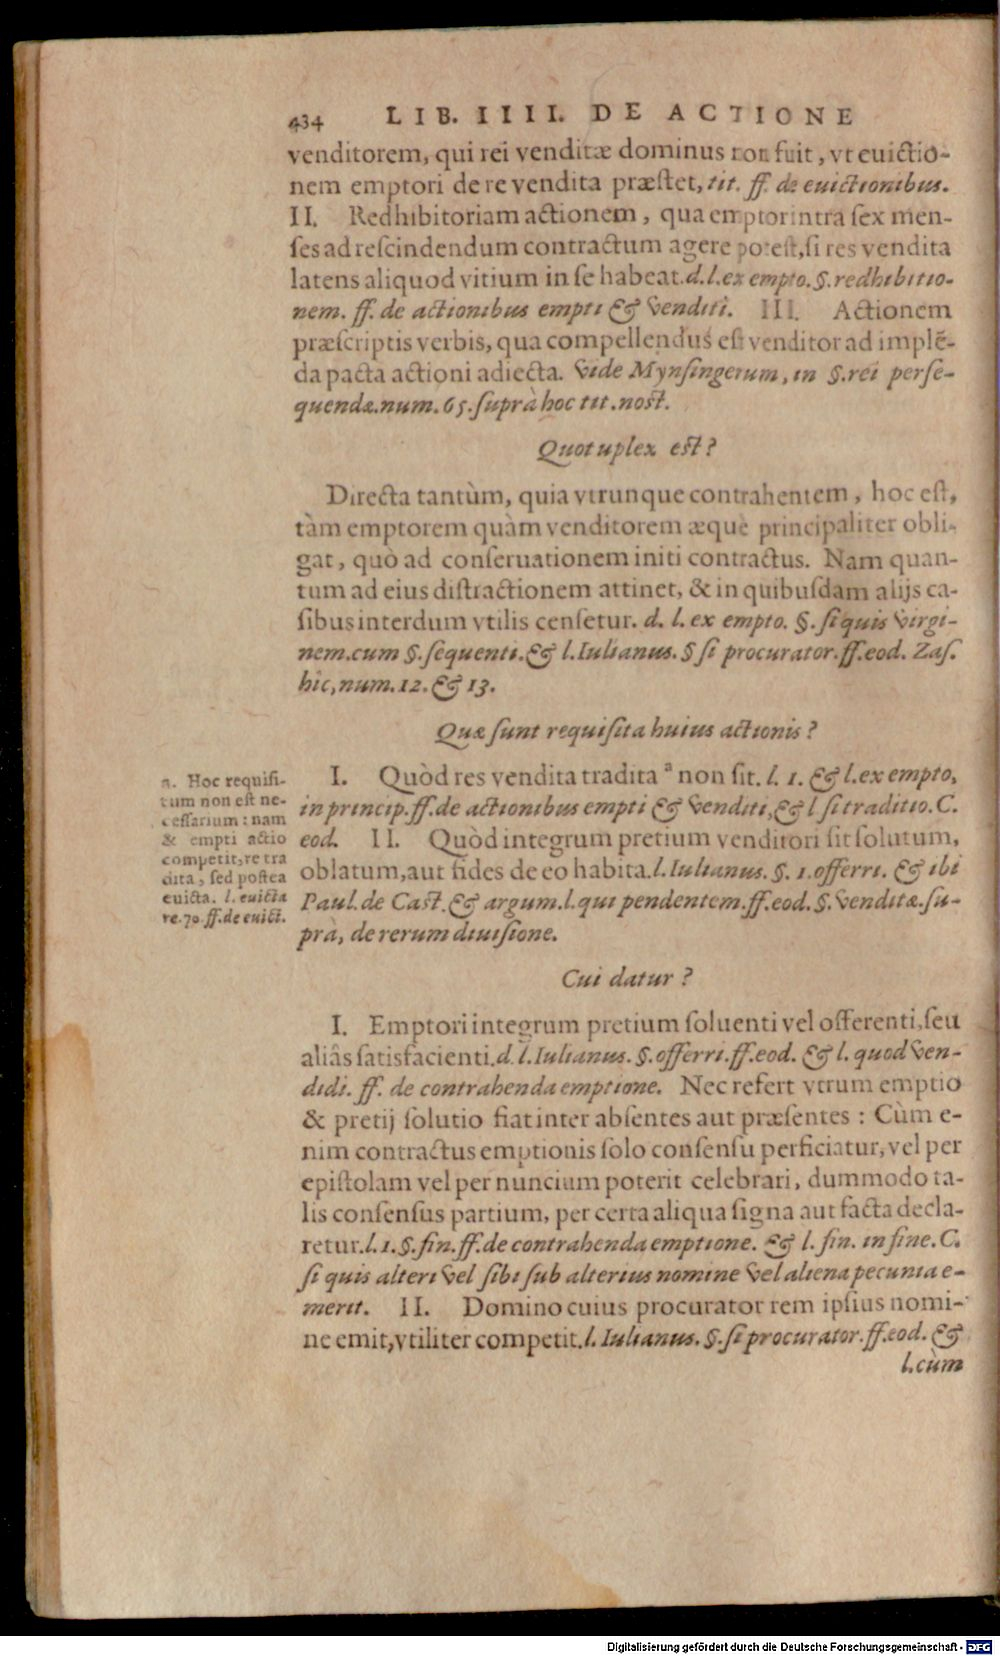 434 LIB. IIII. DE ACTIONE
venditorem, qui rei venditæ dominus non fuit, vt euictio-
nem emptori de re vendita præstet, tit. ff. de euictionibus.
II. Redhibitoriam actionem, qua emptor intra sex men-
ses ad rescindendum contractum agere potest, si res vendita
latens aliquod vitium in se habeat. d. l. ex empto. §. redhibitio-
nem. ff. de actionibus empti & venditi. III. Actionem
præscriptis verbis, qua compellendus est venditor ad implē-
da pacta actioni adiecta. Vide Mynsingerum, in §. rei perse-
quendæ. num. 65. suprà hoc tit. nost.
Quotuplex est?
Directa tantùm, quia vtrunque contrahentem, hoc est,
tàm emptorem quàm venditorem æquè principaliter obli-
gat, quò ad conseruationem initi contractus. Nam quan-
tum ad eius distractionem attinet, & in quibusdam alijs ca-
sibus interdum vtilis censetur. d. l. ex empto. §. si quis virgi-
nem. cum §. sequenti. & l. Iulianus. § si procurator. ff. eod. Zas.
hîc, num. 12. & 13.
Quæ sunt requisita huius actionis?
I. Quòd res vendita tradita a non sit. l. 1. & l. ex empto,
in princip. ff. de actionibus empti & venditi, & l si traditio. C.
eod. II. Quòd integrum pretium venditori sit solutum,
oblatum, aut fides de eo habita. l. Iulianus. §. 1. offerri. & ibi
Paul. de Cast. & argum. l. qui pendentem. ff. eod. §. venditæ. su-
prà, de rerum diuisione.
a. Hoc requisi-
tum non est ne-
cessarium: nam
& empti actio
competit, re tra
dita, sed postea
euicta. l. euicta
re. 70. ff. de euict.
Cui datur?
I. Emptori integrum pretium soluenti vel offerenti, seu
aliâs satisfacienti. d. l. Iulianus. §. offerri. ff. eod. & l. quod ven-
didi. ff. de contrahenda emptione. Nec refert vtrum emptio
& pretij solutio fiat inter absentes aut præsentes: Cùm e-
nim contractus emptionis solo consensu perficiatur, vel per
epistolam vel per nuncium poterit celebrari, dummodo ta-
lis consensus partium, per certa aliqua signa aut facta decla-
retur. l. 1. §. fin. ff. de contrahenda emptione. & l. fin. in fine. C.
si quis alteri vel sibi sub alterius nomine vel aliena pecunia e-
merit. II. Domino cuius procurator rem ipsius nomi-
ne emit, vtiliter competit. l. Iulianus. §. si procurator. ff. eod. &
l. cùm
Digitalisierung gefördert durch die Deutsche Forschungsgemeinschaft - DFG